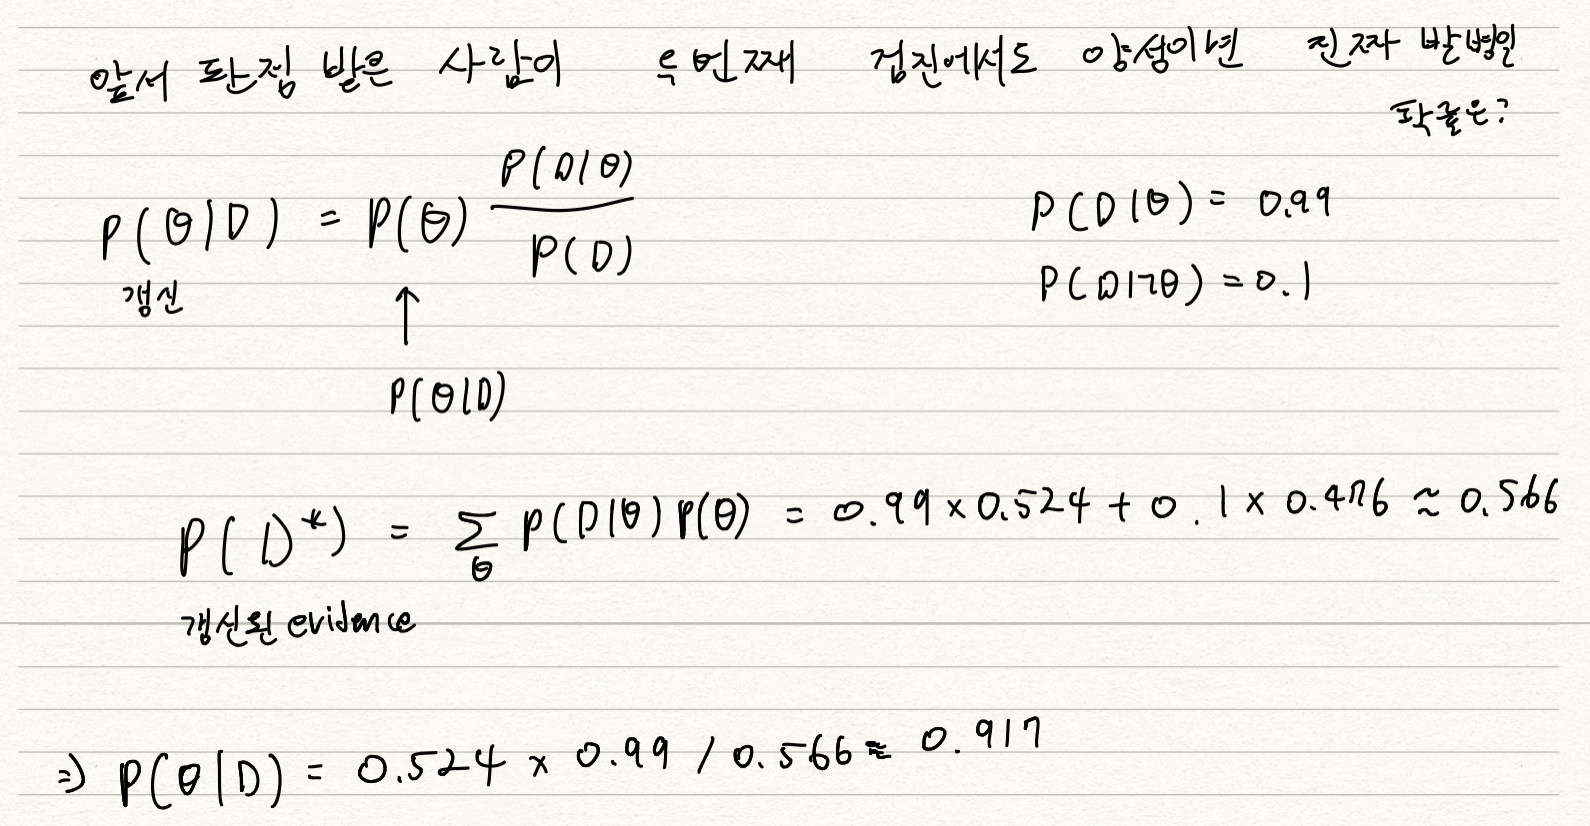 앞서 판정 받은 사람이 두번째 검진에서도 양성이면 진짜 발병일
확률은?
P(θ|D) = P(θ) P(D|θ) / P(D)
P(D|θ) = 0.99
P(D|¬θ) = 0.1
갱신
↑
P(θ|D)
P(D*) = Σ_θ P(D|θ)P(θ) = 0.99 × 0.524 + 0.1 × 0.476 ≈ 0.566
갱신된 evidence
⇒ P(θ|D) = 0.524 × 0.99 / 0.566 ≈ 0.917